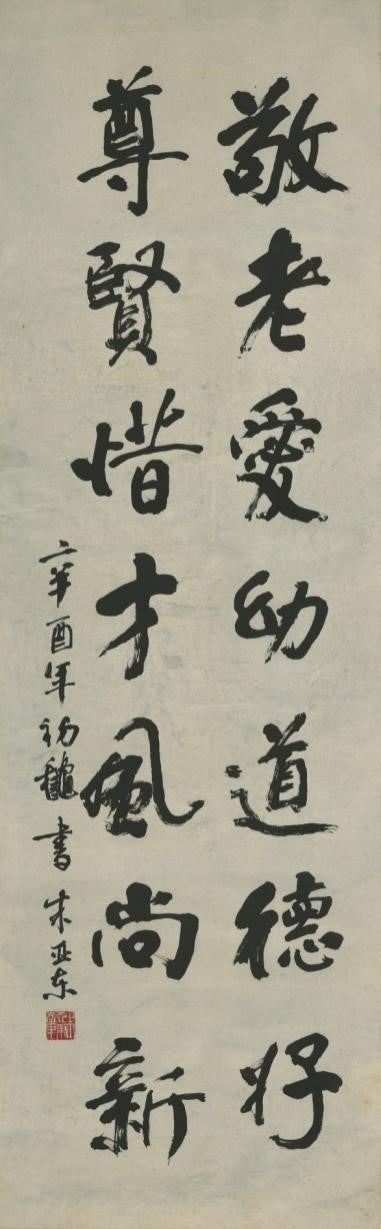 敬老愛幼道德好
尊賢惜才風尚新
辛酉年初龝书朱亚东